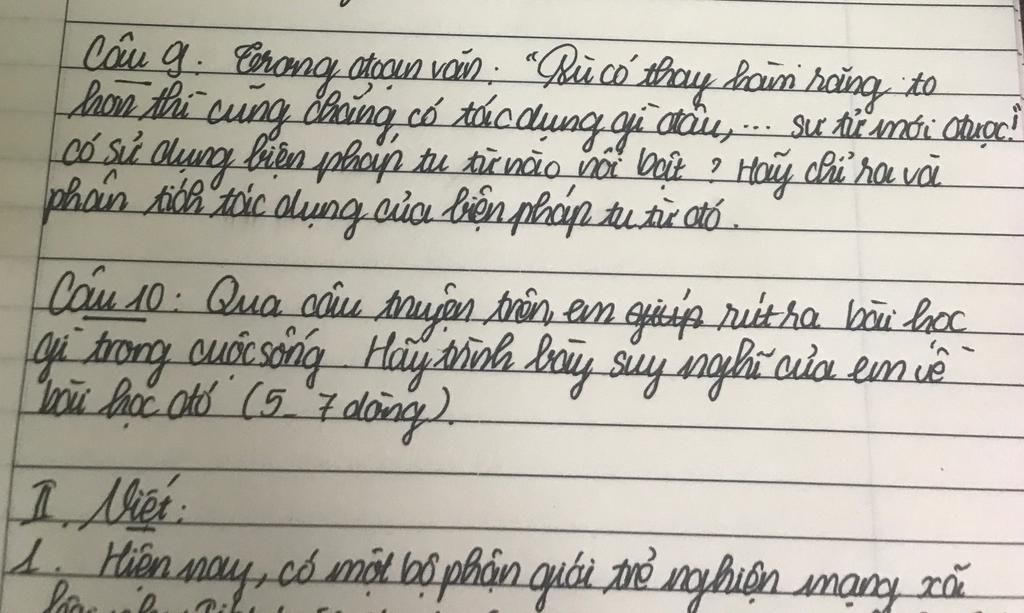 Câu 9. Trong đoạn văn. "Dù có thay hàm răng to
hơn thì cũng chẳng có tác dụng gì đâu, ... sư tử mới được!"
có sử dụng biện pháp tu từ nào nổi bật? Hãy chỉ ra và
phân tích tác dụng của biện pháp tu từ đó.
Câu 10: Qua câu truyện trên, em rút ra bài học
gì trong cuộc sống. Hãy trình bày suy nghĩ của em về
bài học đó (5-7 dòng).
II. Viết:
1. Hiện nay, có một bộ phận giới trẻ nghiện mạng xã